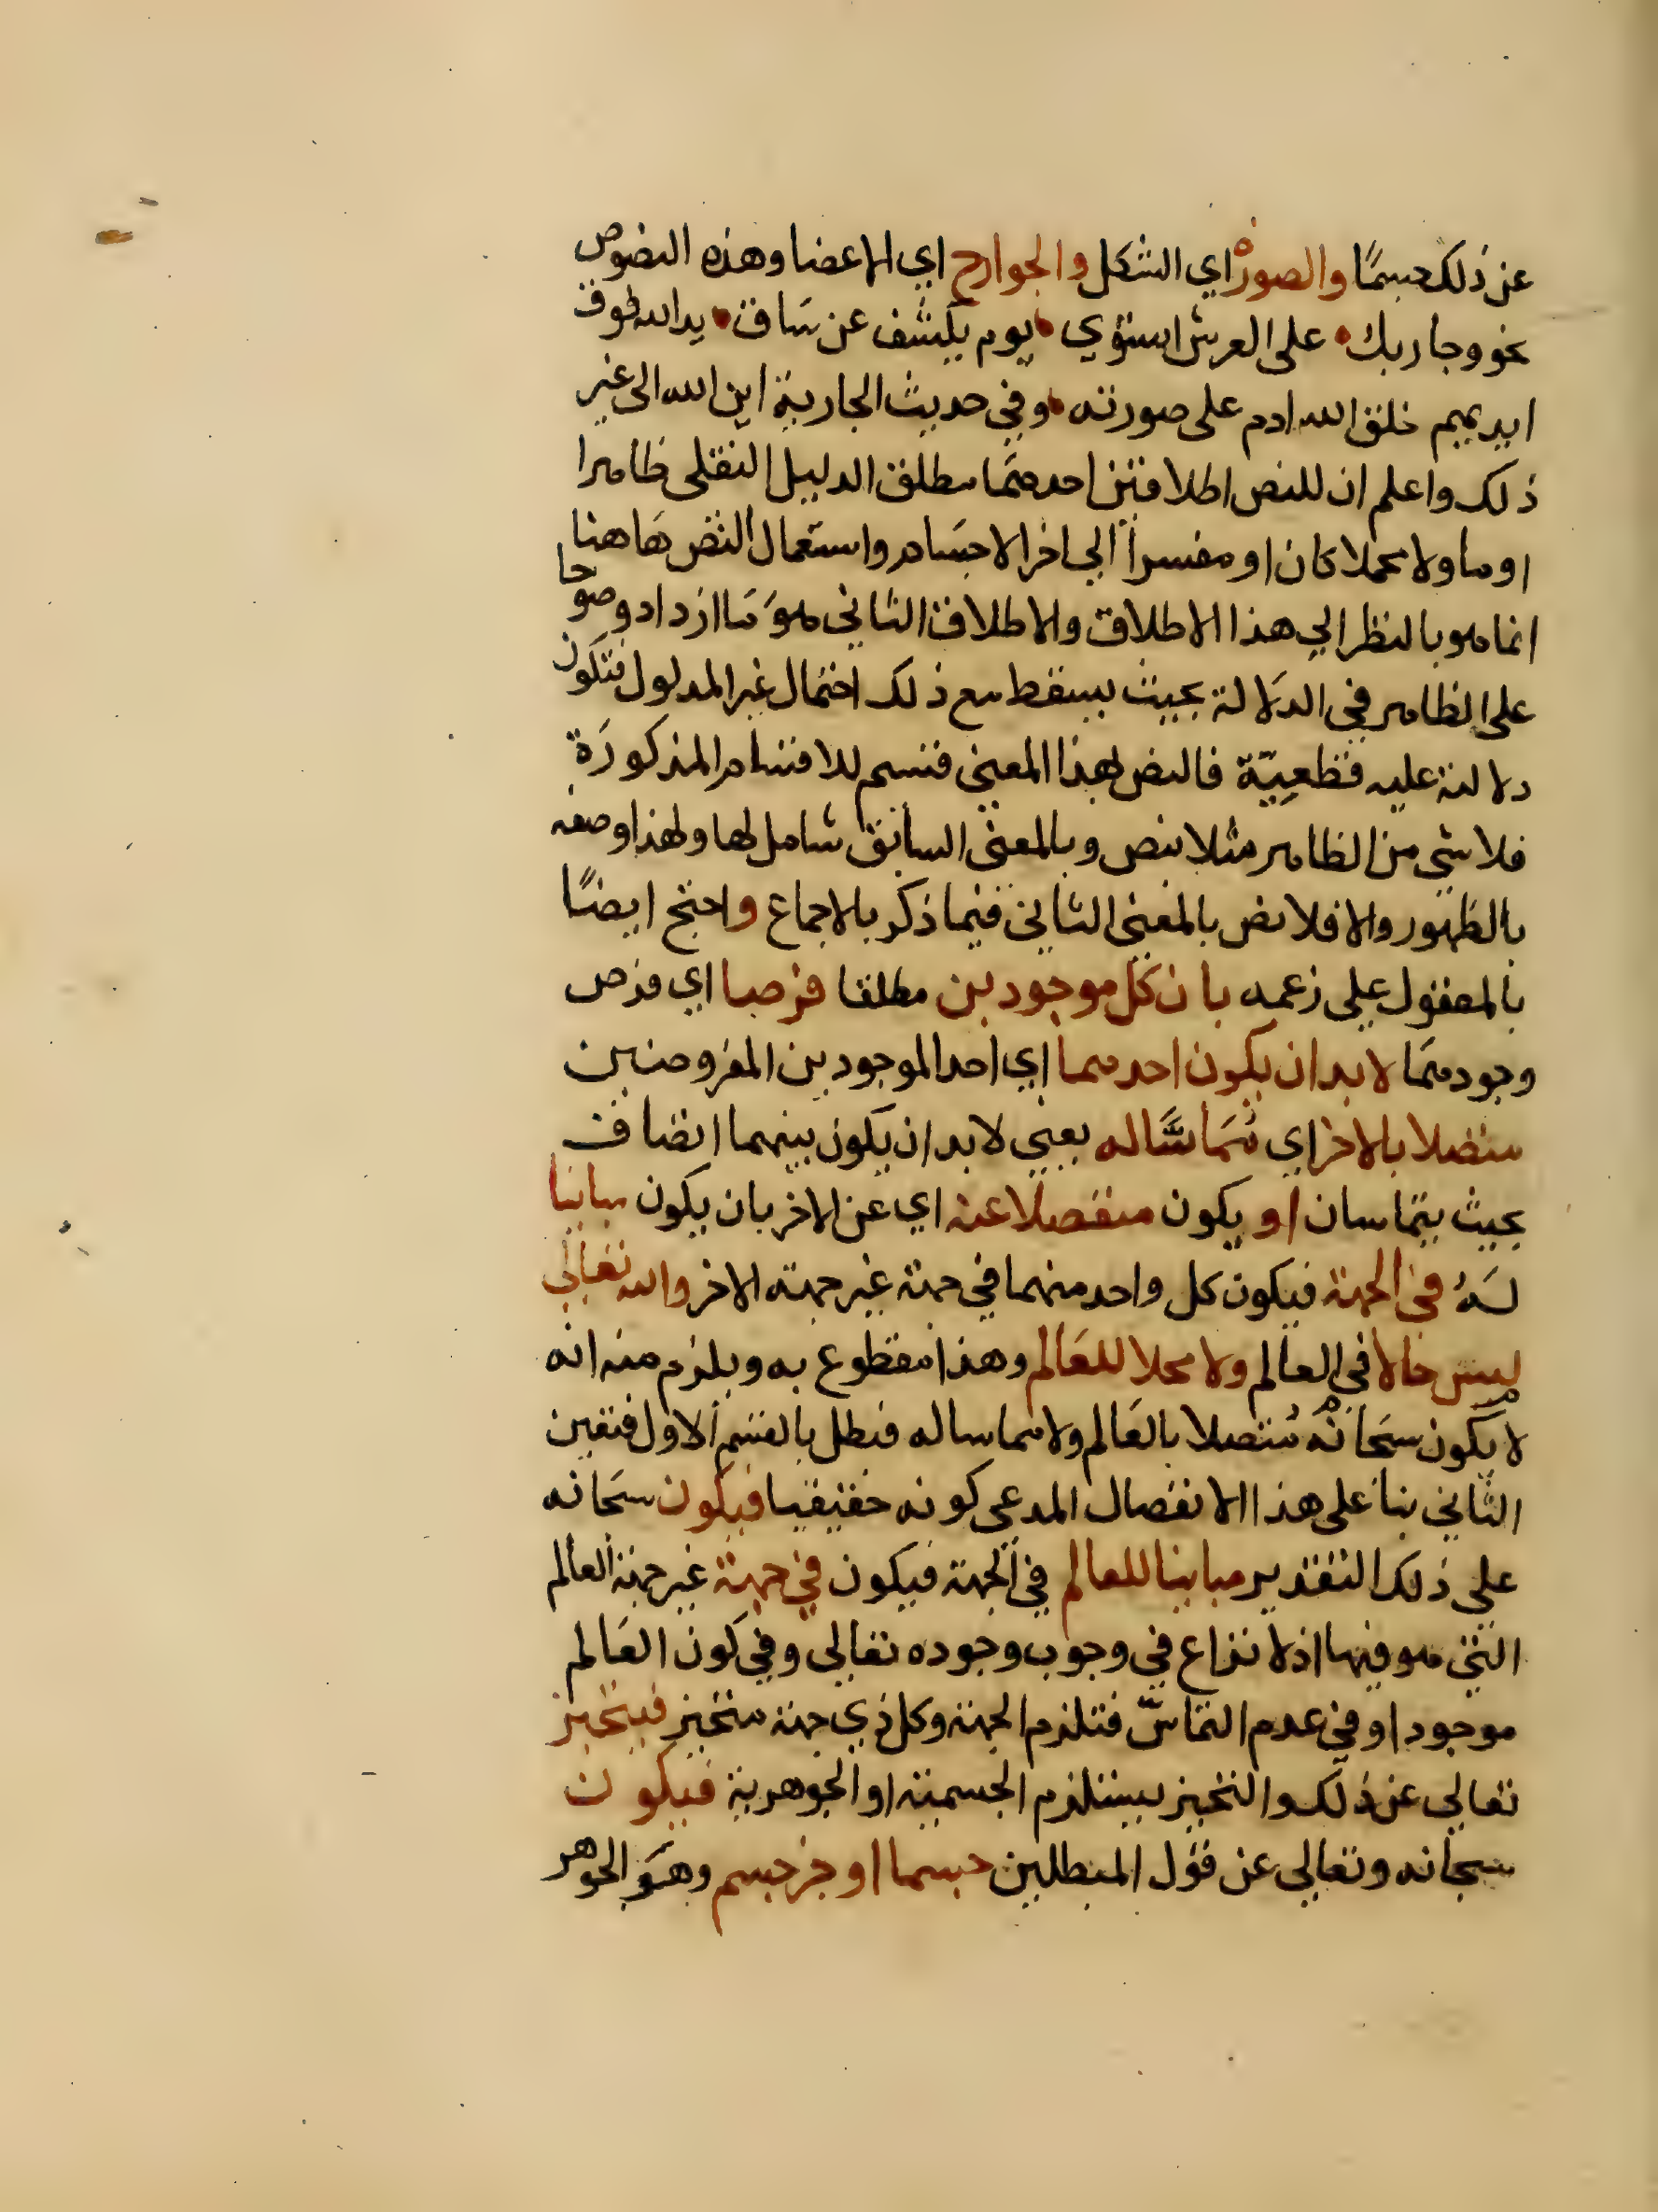 عن ذلك جسمًا والصورة اي الشكل والجوارح اي الاعضا وهذه النصوص
نحو وجا ربك • على العرش استوي • يوم يكشف عن ساق • يد الله فوق
ايديهم خلق الله ادم على صورته • وفي حديث الجارية اين الله الى غير
ذلك واعلم ان للنص اطلاقين احدهما مطلق الدليل النقلى ظاهرا
او ماولا مجملا كان او مفسرا الي اخر الاقسام واستعمال النص هاهنا
انما هو بالنظر الي هذا الاطلاق والاطلاق الثاني هو ما ازداد وضوحا
على الظاهر في الدلالة بحيث يسقط مع ذلك احتمال غير المدلول فتكون
دلالته عليه قطعيّة فالنص بهذا المعني قسيم للاقسام المذكورة
فلا شي من الظاهر مثلا بنص وبالمعنى السابق شامل لها ولهذا وصفه
بالظهور والا فلا نص بالمعني الثاني فيما ذكر بالاجماع واحتج ايضًا
بالمعقول على زعمه بان كل موجودين مطلقا فرضا اي فرض
وجودهما لا بد ان يكون احدهما اي احد الموجودين المفروضين
متصلا بالاخر اي مماسًّا له يعني لا بد ان يكون بينهما اتصاف
بحيث يتماسان او يكون منفصلا عنه اي عن الاخر بان يكون مباينا
له في الجهة فيكون كل واحد منهما في جهة غير جهته الاخر والله تعالي
ليس حالا في العالم ولا محلا للعالم وهذا مقطوع به ويلزم منه انه
لا يكون سبحانه متصلا بالعالم ولا مماسا له فبطل بالقسم الاول فتعين
الثاني بنا على هذا الانفصال المدعى كونه حقيقيا فيكون سبحانه
على ذلك التقدير مباينا للعالم في الجهة فيكون في جهة غير جهة العالم
التي هو فيها اذ لا نزاع في وجوب وجوده تعالى وفي كون العالم
موجودا وفي عدم التماسّ فتلزم الجهة وكل ذي جهة متحيز فيتحيز
تعالي عن ذلك والتحيز يستلزم الجسمية او الجوهرية فيكون
سبحانه وتعالى عن قول المبطلين جسما او جز جسم وهو الجوهر